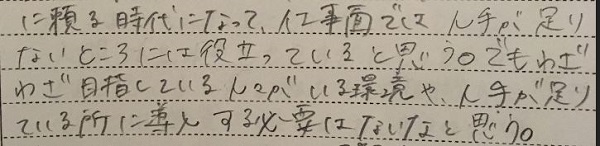 に頼る時代になって、仕事面では人手が足り
ないところには役立っていると思う。でもわざ
わざ目指している人々がいる環境や、人手が足り
ている所に導入する必要はないなと思う。